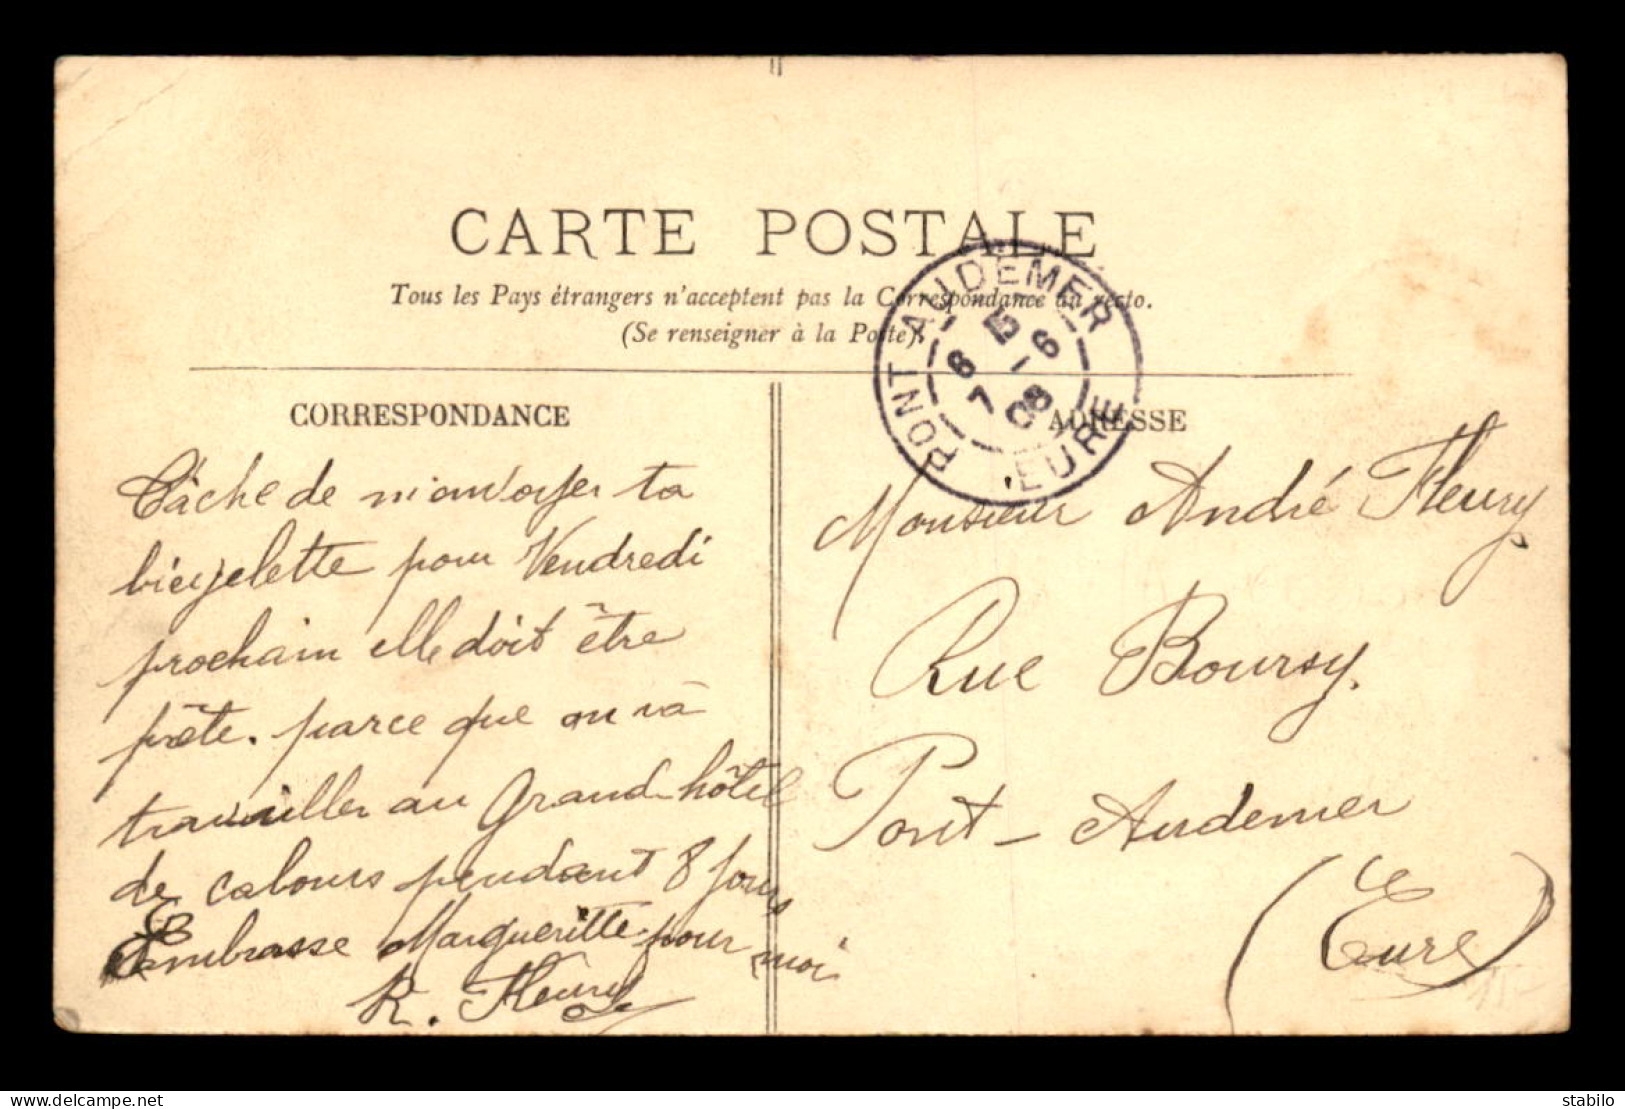 CARTE POSTALE
Tous les Pays étrangers n'acceptent pas la Correspondance au recto.
(Se renseigner à la Poste).
PONT-AUDEMER
EURE
6 15
7 -6
08
CORRESPONDANCE
Tâche de m'envoyer ta
bicyclette pour Vendredi
prochain elle doit être
prête. parce que on và
travailler au Grand-hôtel
de cabours pendant 8 jours
Embrasse Margueritte pour moi
R. Fleury
ADRESSE
Monsieur André Fleury
Rue Boursy.
Pont-Audemer
(Eure)
delcampe.net
stabilo